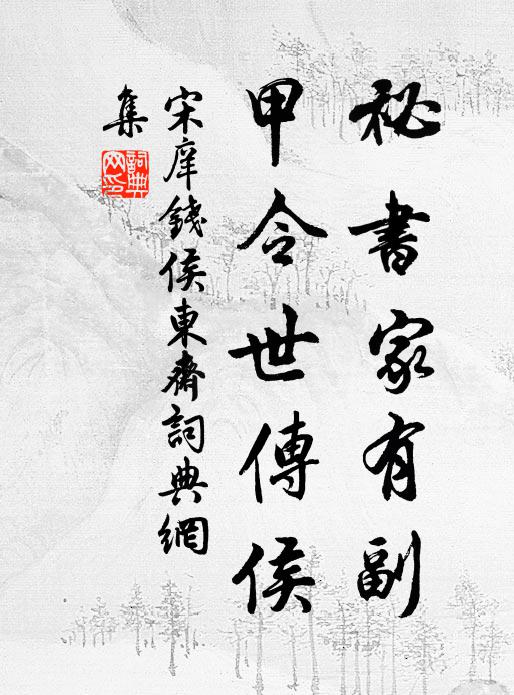 秘書家有副
甲令世傳侯
宋庠錢侯東齋詞典網
集
詞典网印